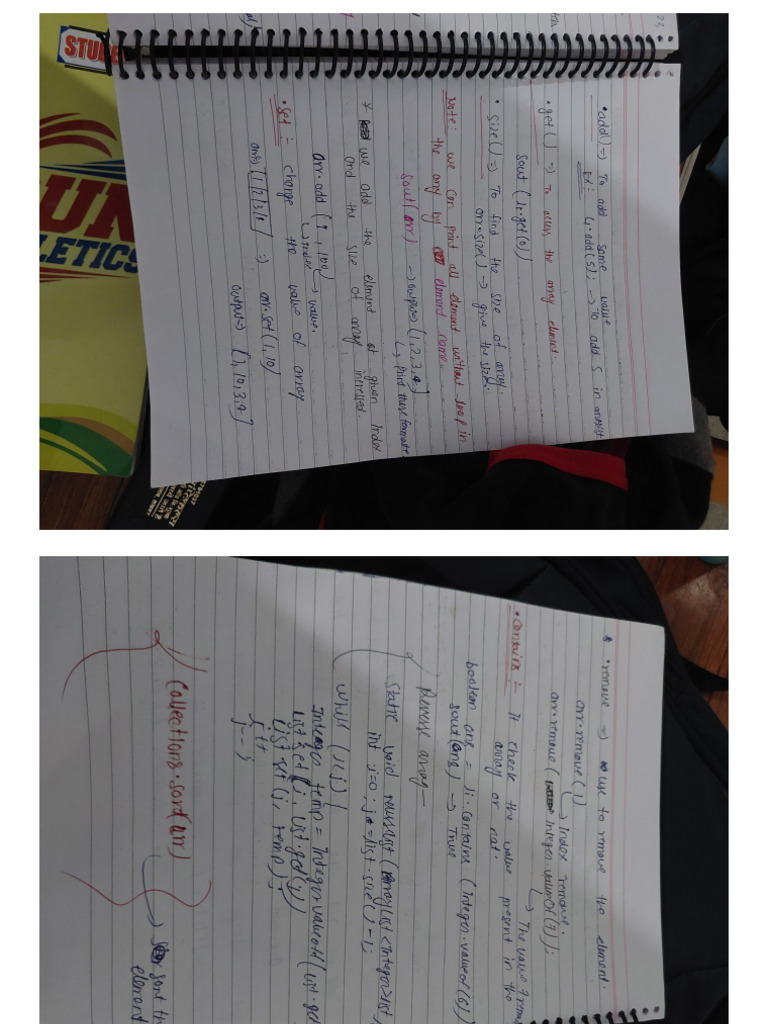 • add() => To add some value
Ex:- l1.add(5); -> To add 5 in arraylist
• get() => To access the array element.
sout (l1.get(0))
• size() => To find the size of array.
arr.size() -> give the size.
Note: we can print all element without loop in
the array by element name.
sout(arr) -> output=> [1,2,3,4]
Print these formatte
* we add the element at given index
and the size of array increased.
arr.add (1, 100)
index -> value.
• Set :- change the value of array
[1,2,3,4] => arr.set(1,10)
output=> [1,10,3,4]
STUDE
UN
LETICS
• remove => use to remove the element.
arr.remove()
Index remove.
arr.remove( Integer.valueOf(7));
-> The value 7 remov
• Contains :- It check the value present in the
array or not.
boolean ans = li.contains (Integer.valueof(6))
sout(ans) -> True
Reverse array -
Static void reverselist (ArrayList<Integer>list)
int i=0; j=list.size() - 1;
while (i<j) {
Integer temp = Integer.valueof (list.get
List.set(i, list.get(j))
List.set (j, temp);
i++
j--;
Collections.sort(arr)
sort the
element